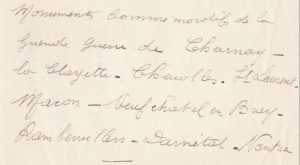 Monuments Commémoratifs de la
Grande Guerre de Charnay –
la Clayette – Charolles – St Laurent –
Macon – Neufchatel en Bray –
Rambervillers – Darnétal – Nantua